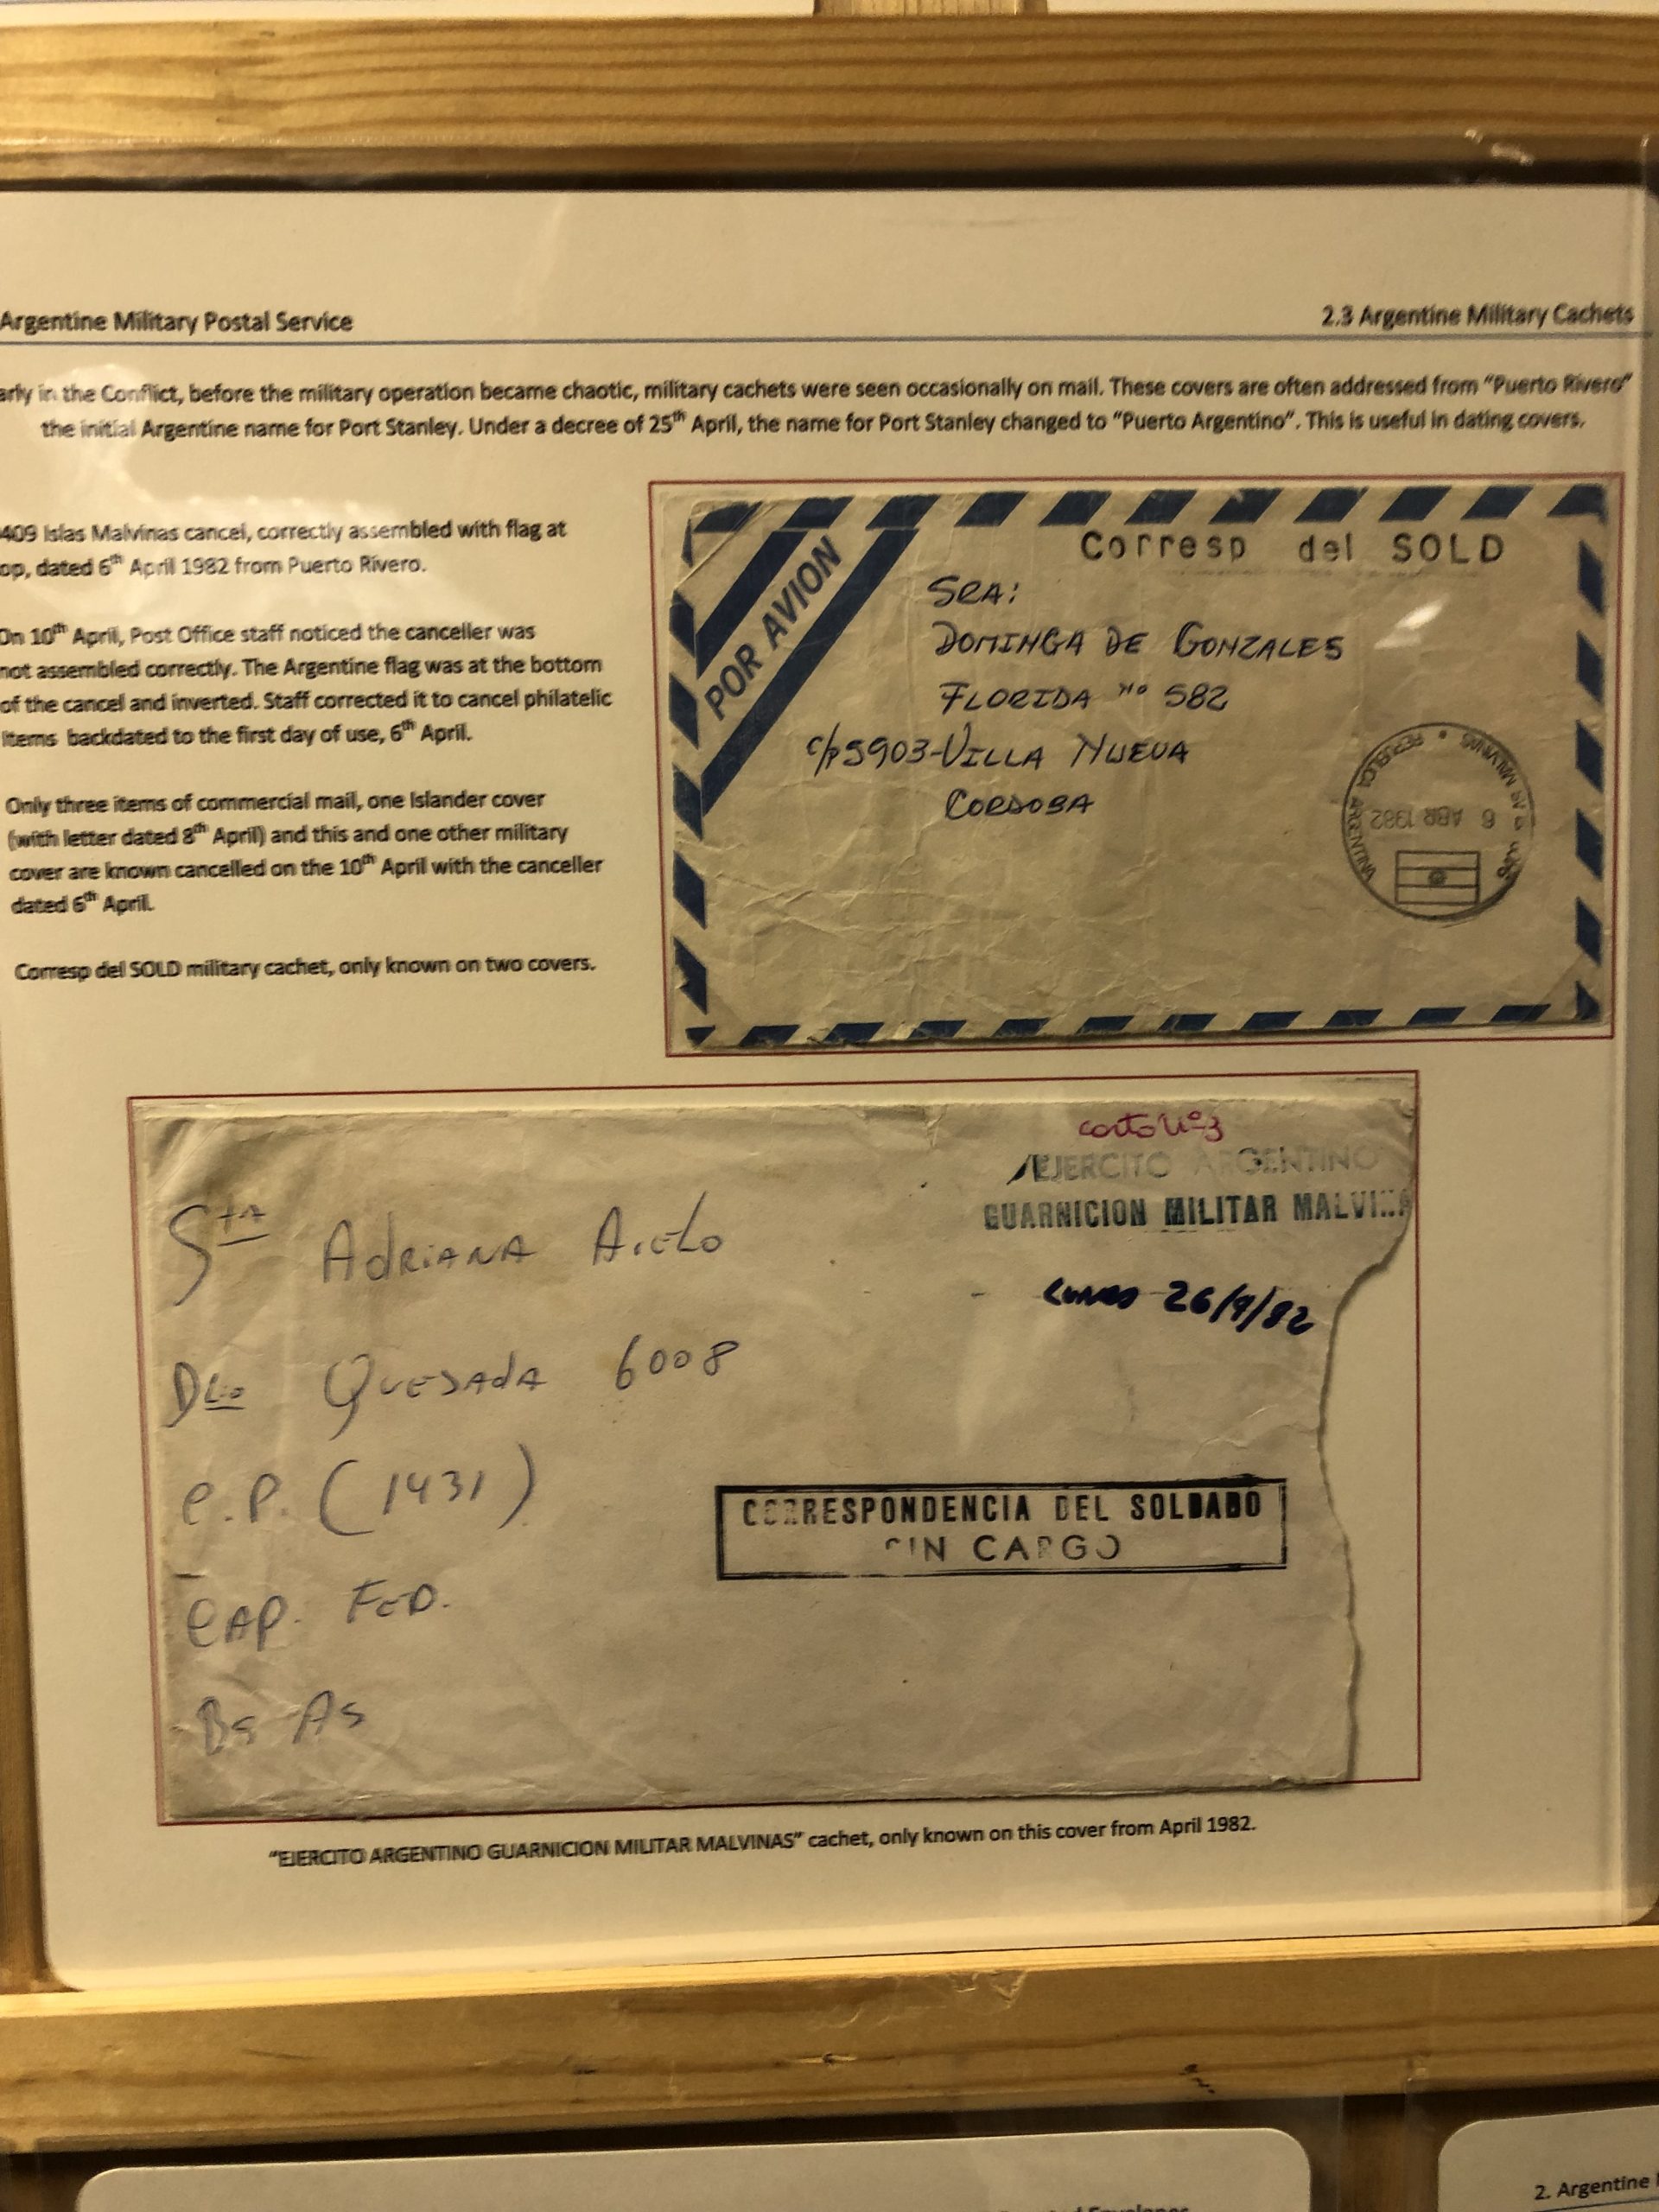 Argentine Military Postal Service
2.3 Argentine Military Cachets
arly in the Conflict, before the military operation became chaotic, military cachets were seen occasionally on mail. These covers are often addressed from "Puerto Rivero"
the initial Argentine name for Port Stanley. Under a decree of 25th April, the name for Port Stanley changed to "Puerto Argentino". This is useful in dating covers.
409 Islas Malvinas cancel, correctly assembled with flag at
op, dated 6th April 1982 from Puerto Rivero.
On 10th April, Post Office staff noticed the canceller was
not assembled correctly. The Argentine flag was at the bottom
of the cancel and inverted. Staff corrected it to cancel philatelic
items backdated to the first day of use, 6th April.
Only three items of commercial mail, one Islander cover
(with letter dated 8th April) and this and one other military
cover are known cancelled on the 10th April with the canceller
dated 6th April.
Corresp del SOLD military cachet, only known on two covers.
POR AVION
Corresp del SOLD
SRA:
DOMINGA DE GONZALES
FLORIDA Nº 582
C/P 5903-VILLA NUEVA
CORDOBA
MALVINAS
6 ABR 1982
REPUBLICA ARGENTINA
EJERCITO ARGENTINO
GUARNICION MILITAR MALVINA
26/4/82
Sta ADRIANA
QUESADA 6008
C.P. (1431)
CAP. FED.
Bs As
CORRESPONDENCIA DEL SOLDADO
SIN CARGO
"EJERCITO ARGENTINO GUARNICION MILITAR MALVINAS" cachet, only known on this cover from April 1982.
2. Argentine